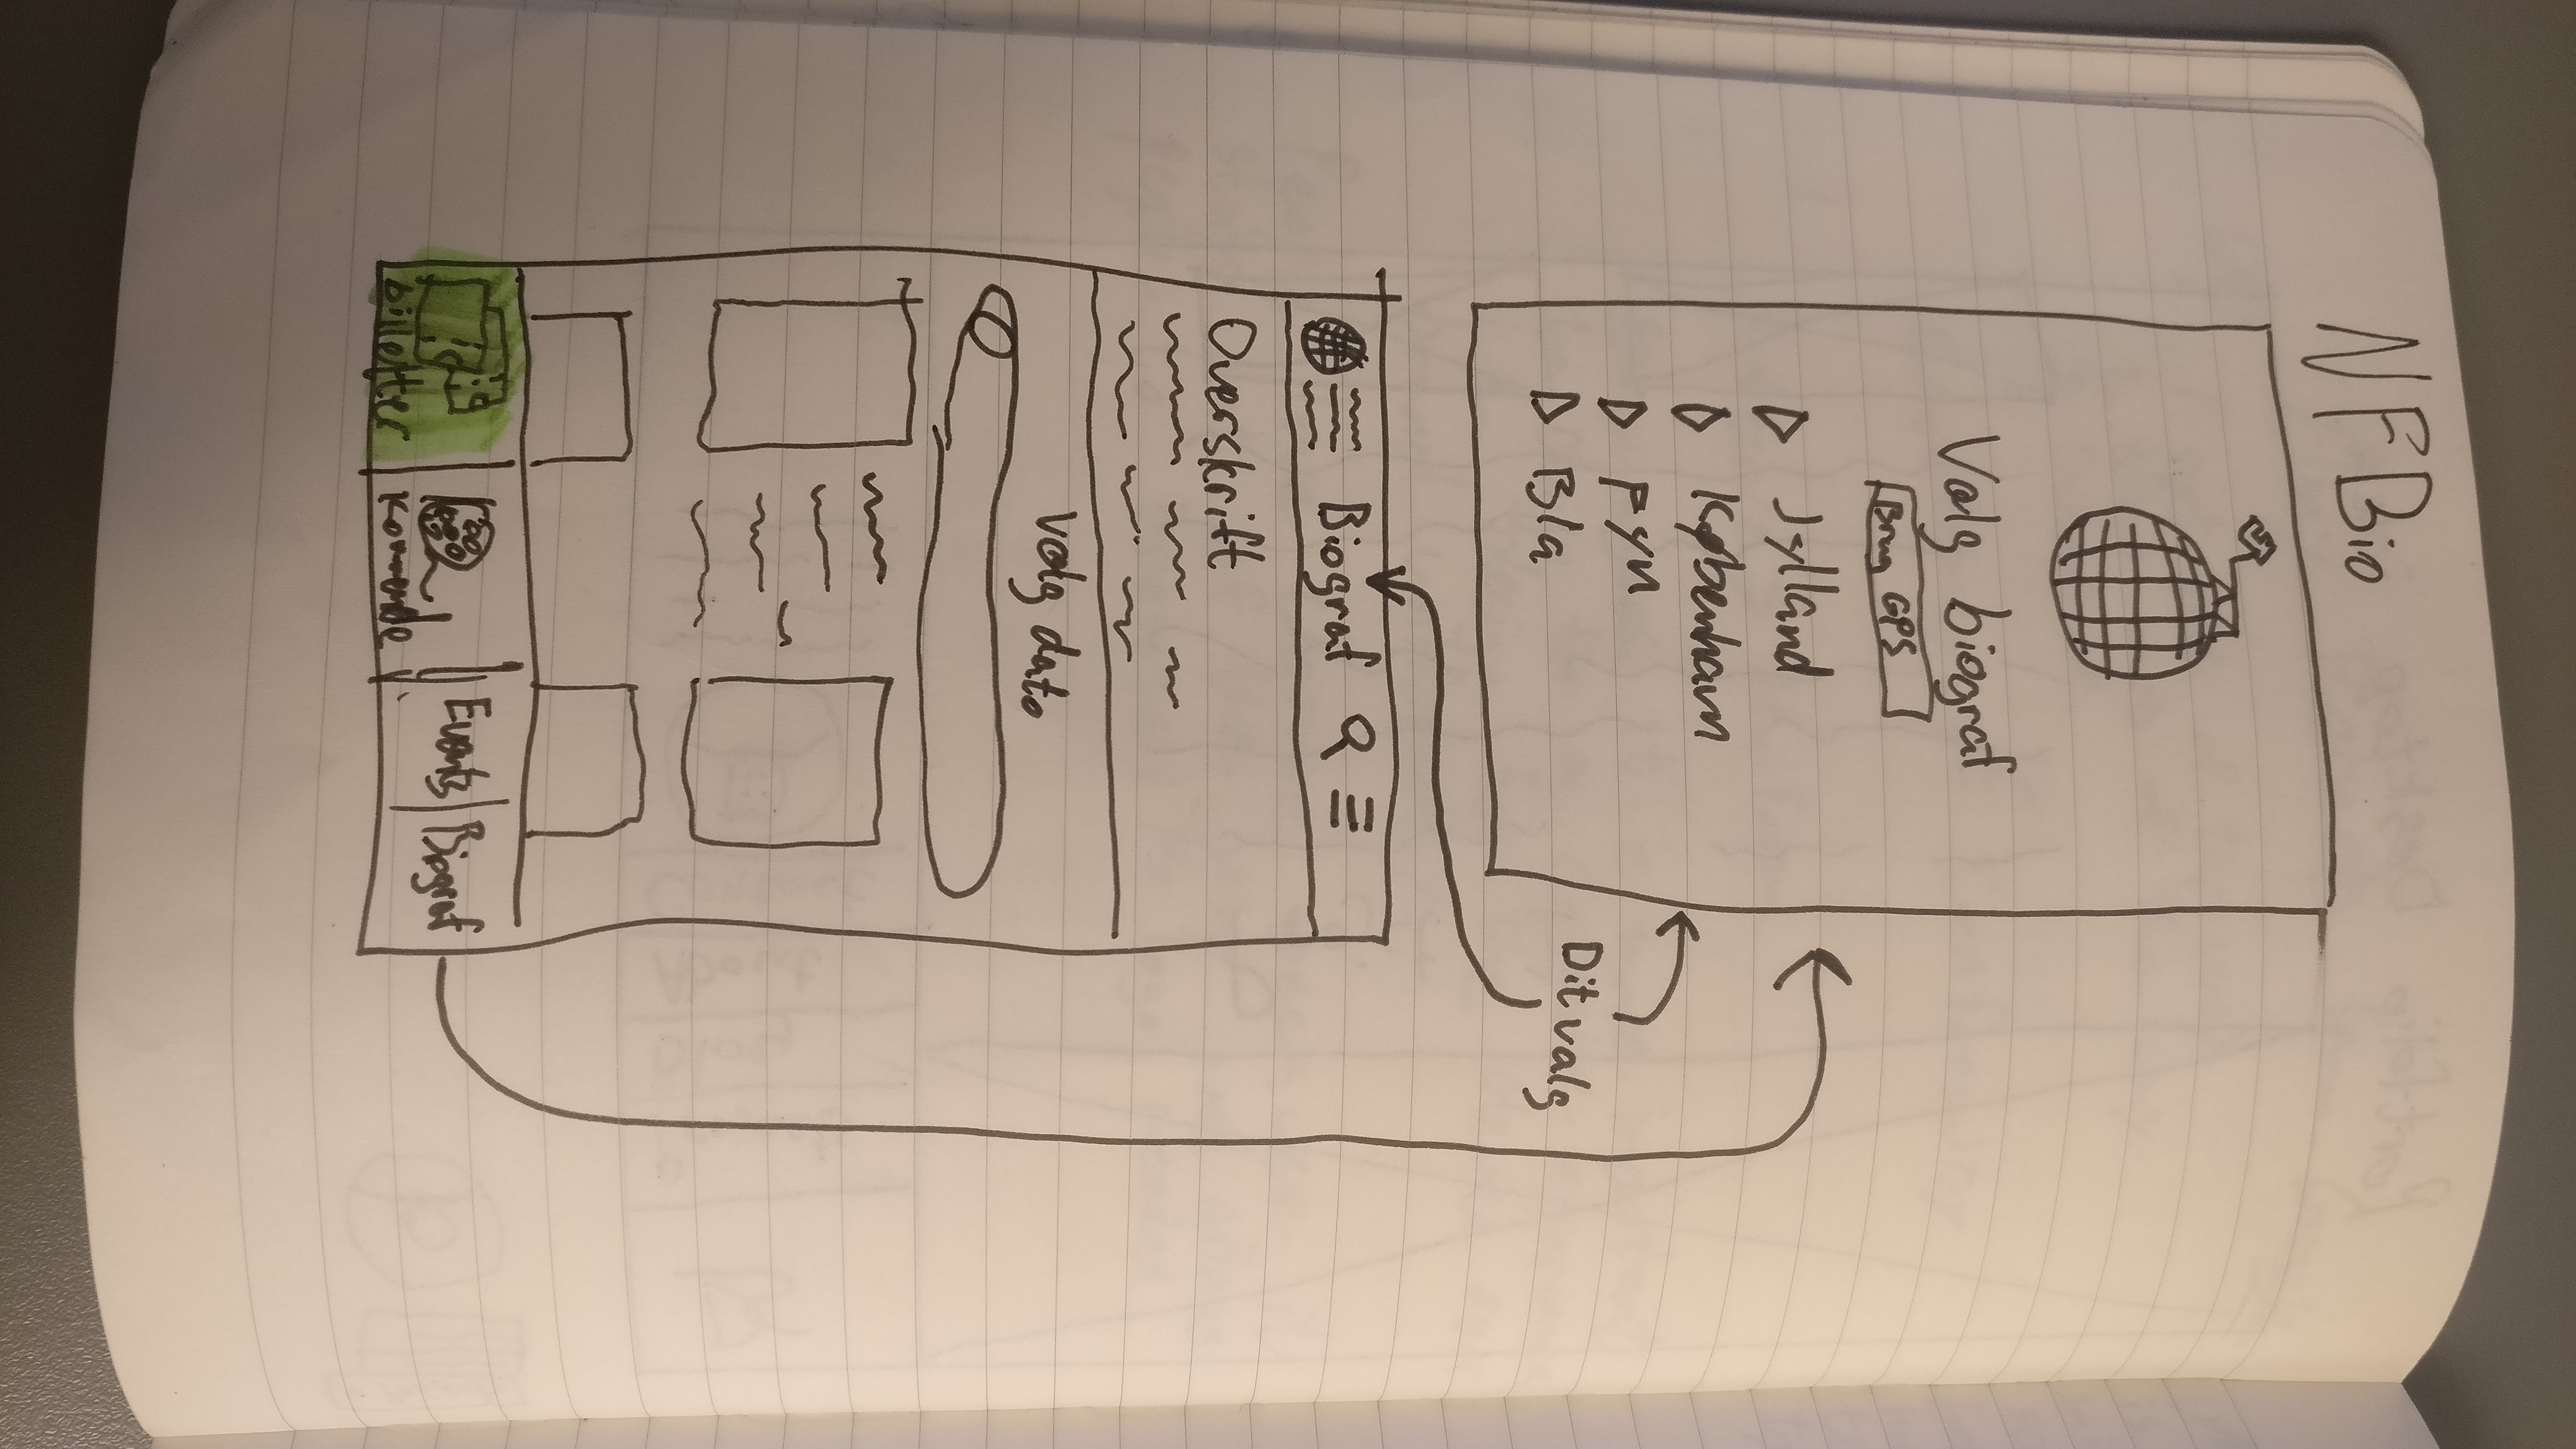 NFBio
Valg biograf
Brug GPS
Jylland
København
Fyn
Bla
Dit valg
Biograf
Overskrift
Valg dato
billetter
Kommende
Events
Biograf